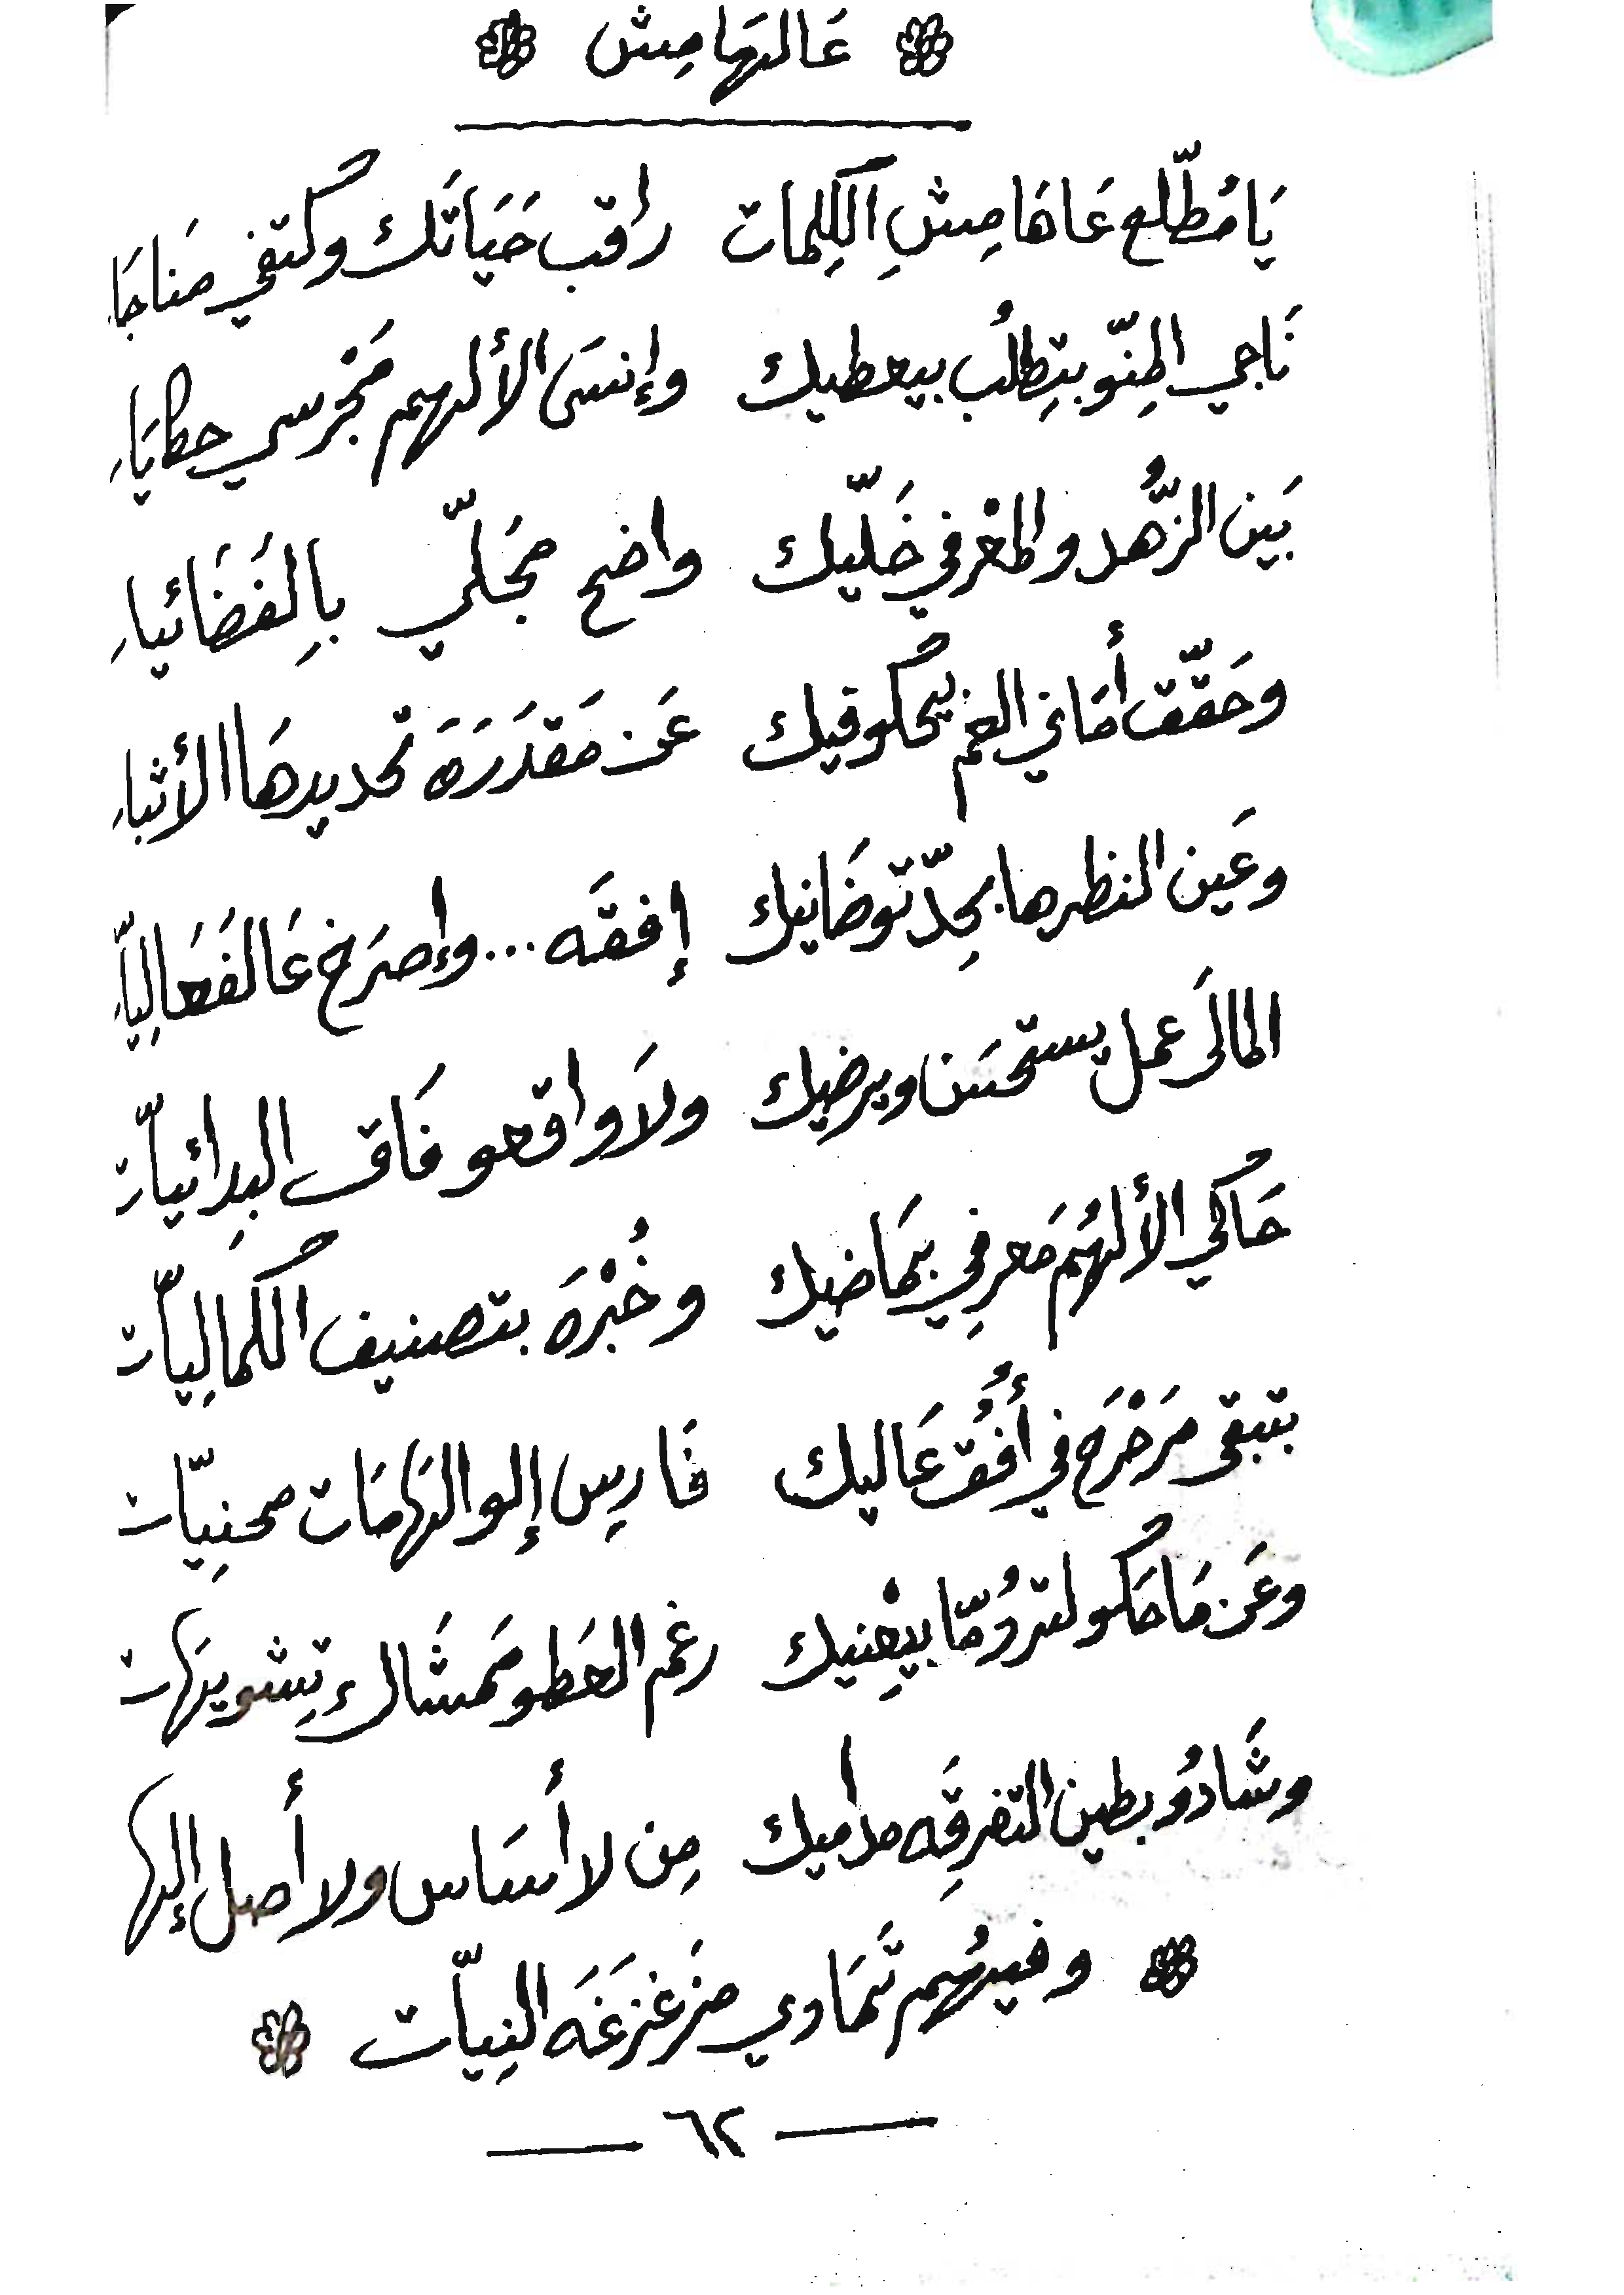 عَالهَامِش
يَا مُطّلع عَا هَامِشِ الكِلمات راقب حَيَاتَك وكتفي مناجَا
نَاجي المِنّو بتِطلُب بيعطيك وإنسَى الألهم مَجْرسي حكايَا
بَين الزُّهد والمغْرفي خَلّيك واضح مجَلّي بِالفَضَائيا
وحَقّق أمَاني العم يحكو فيك عَن مَقدَرَة تحديدهَا الأثبا
وعَين النظرها بجِدّ توضَانيك إفقَه ... وإصرَخ عَالفَعَالِيّا
المالَى عمل يستحسَن ويرضيك ولاَ واقعو فَاق البِدائيّات
حَاكي الألهُم مَعرفِي بمَاضيك وخُبْرَة بتصنيف الكمالِيّات
بتبقى مرَجْرَح في أُفُق عَاليك فَارِس إلو الهَامَات محنِيّات
وعَن مَا حَكو لتروُمّا بيِعْنيك رغم الخَطو مَمشَاك تِشويهَات
وشَادوُ بطين التفرقِه مداميك مِن لا أسَاس ولا أصل إلها
وفيهُم تَمَاوي مزغزغَة النِيّات
٦٢